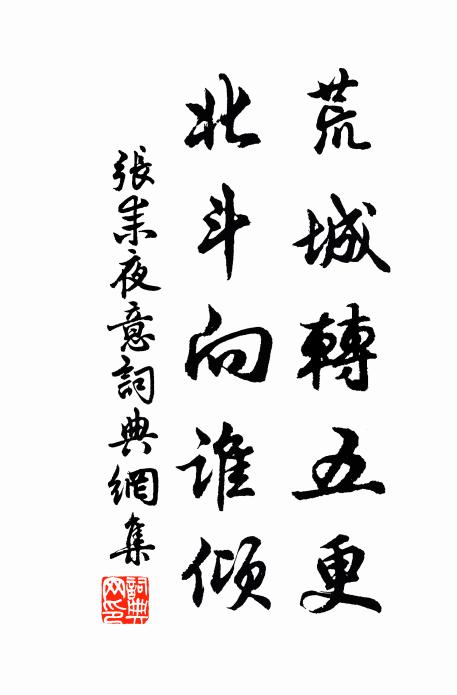 荒城轉五更
北斗向誰傾
張耒夜意詞典網集
詞典网印